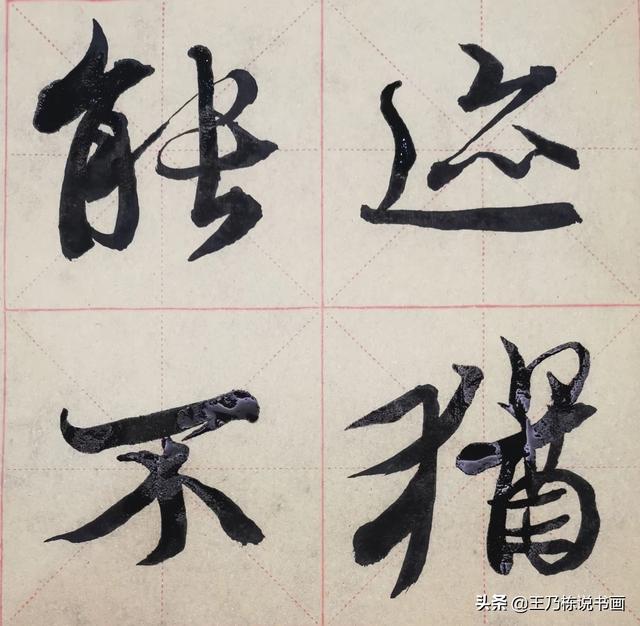 迹猶
能不
头条 @王乃栋说书画